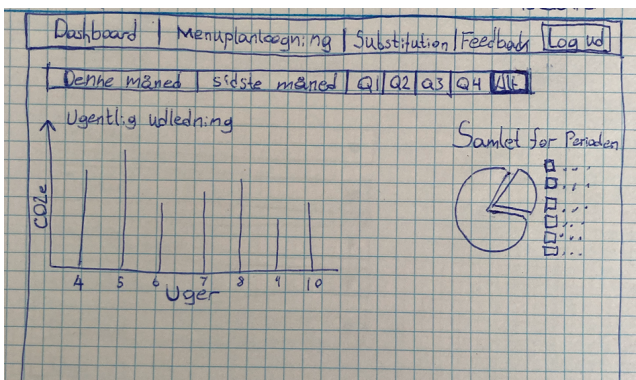 Dashboard | Menuplanloogning | Substitution | Feedback | Log ud
Denne måned | sidste måned | Q1 | Q2 | Q3 | Q4 | Alt
Ugentlig udledning
Samlet for Perioden
CO2e
4 5 6 7 8 9 10
Uger